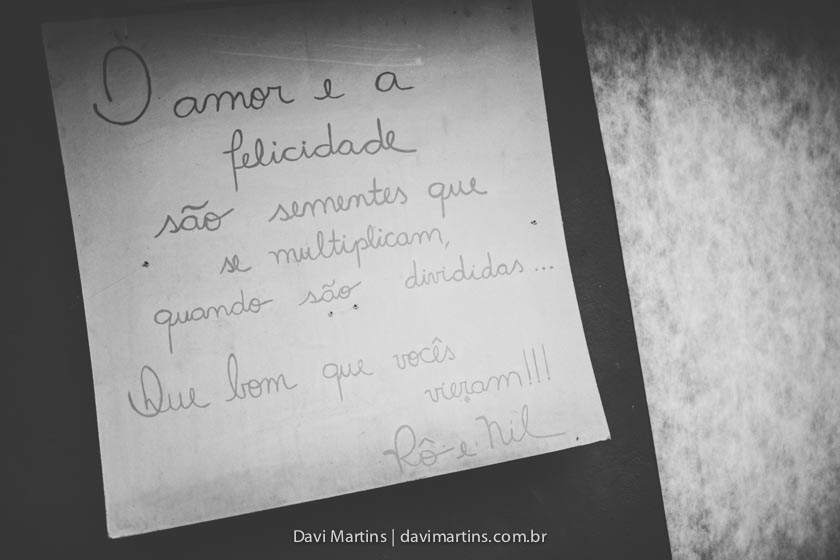 O amor e a
felicidade
são sementes que
se multiplicam,
quando são divididas...
Que bom que vocês
vieram!!!
Rô e Nil
Davi Martins | davimartins.com.br